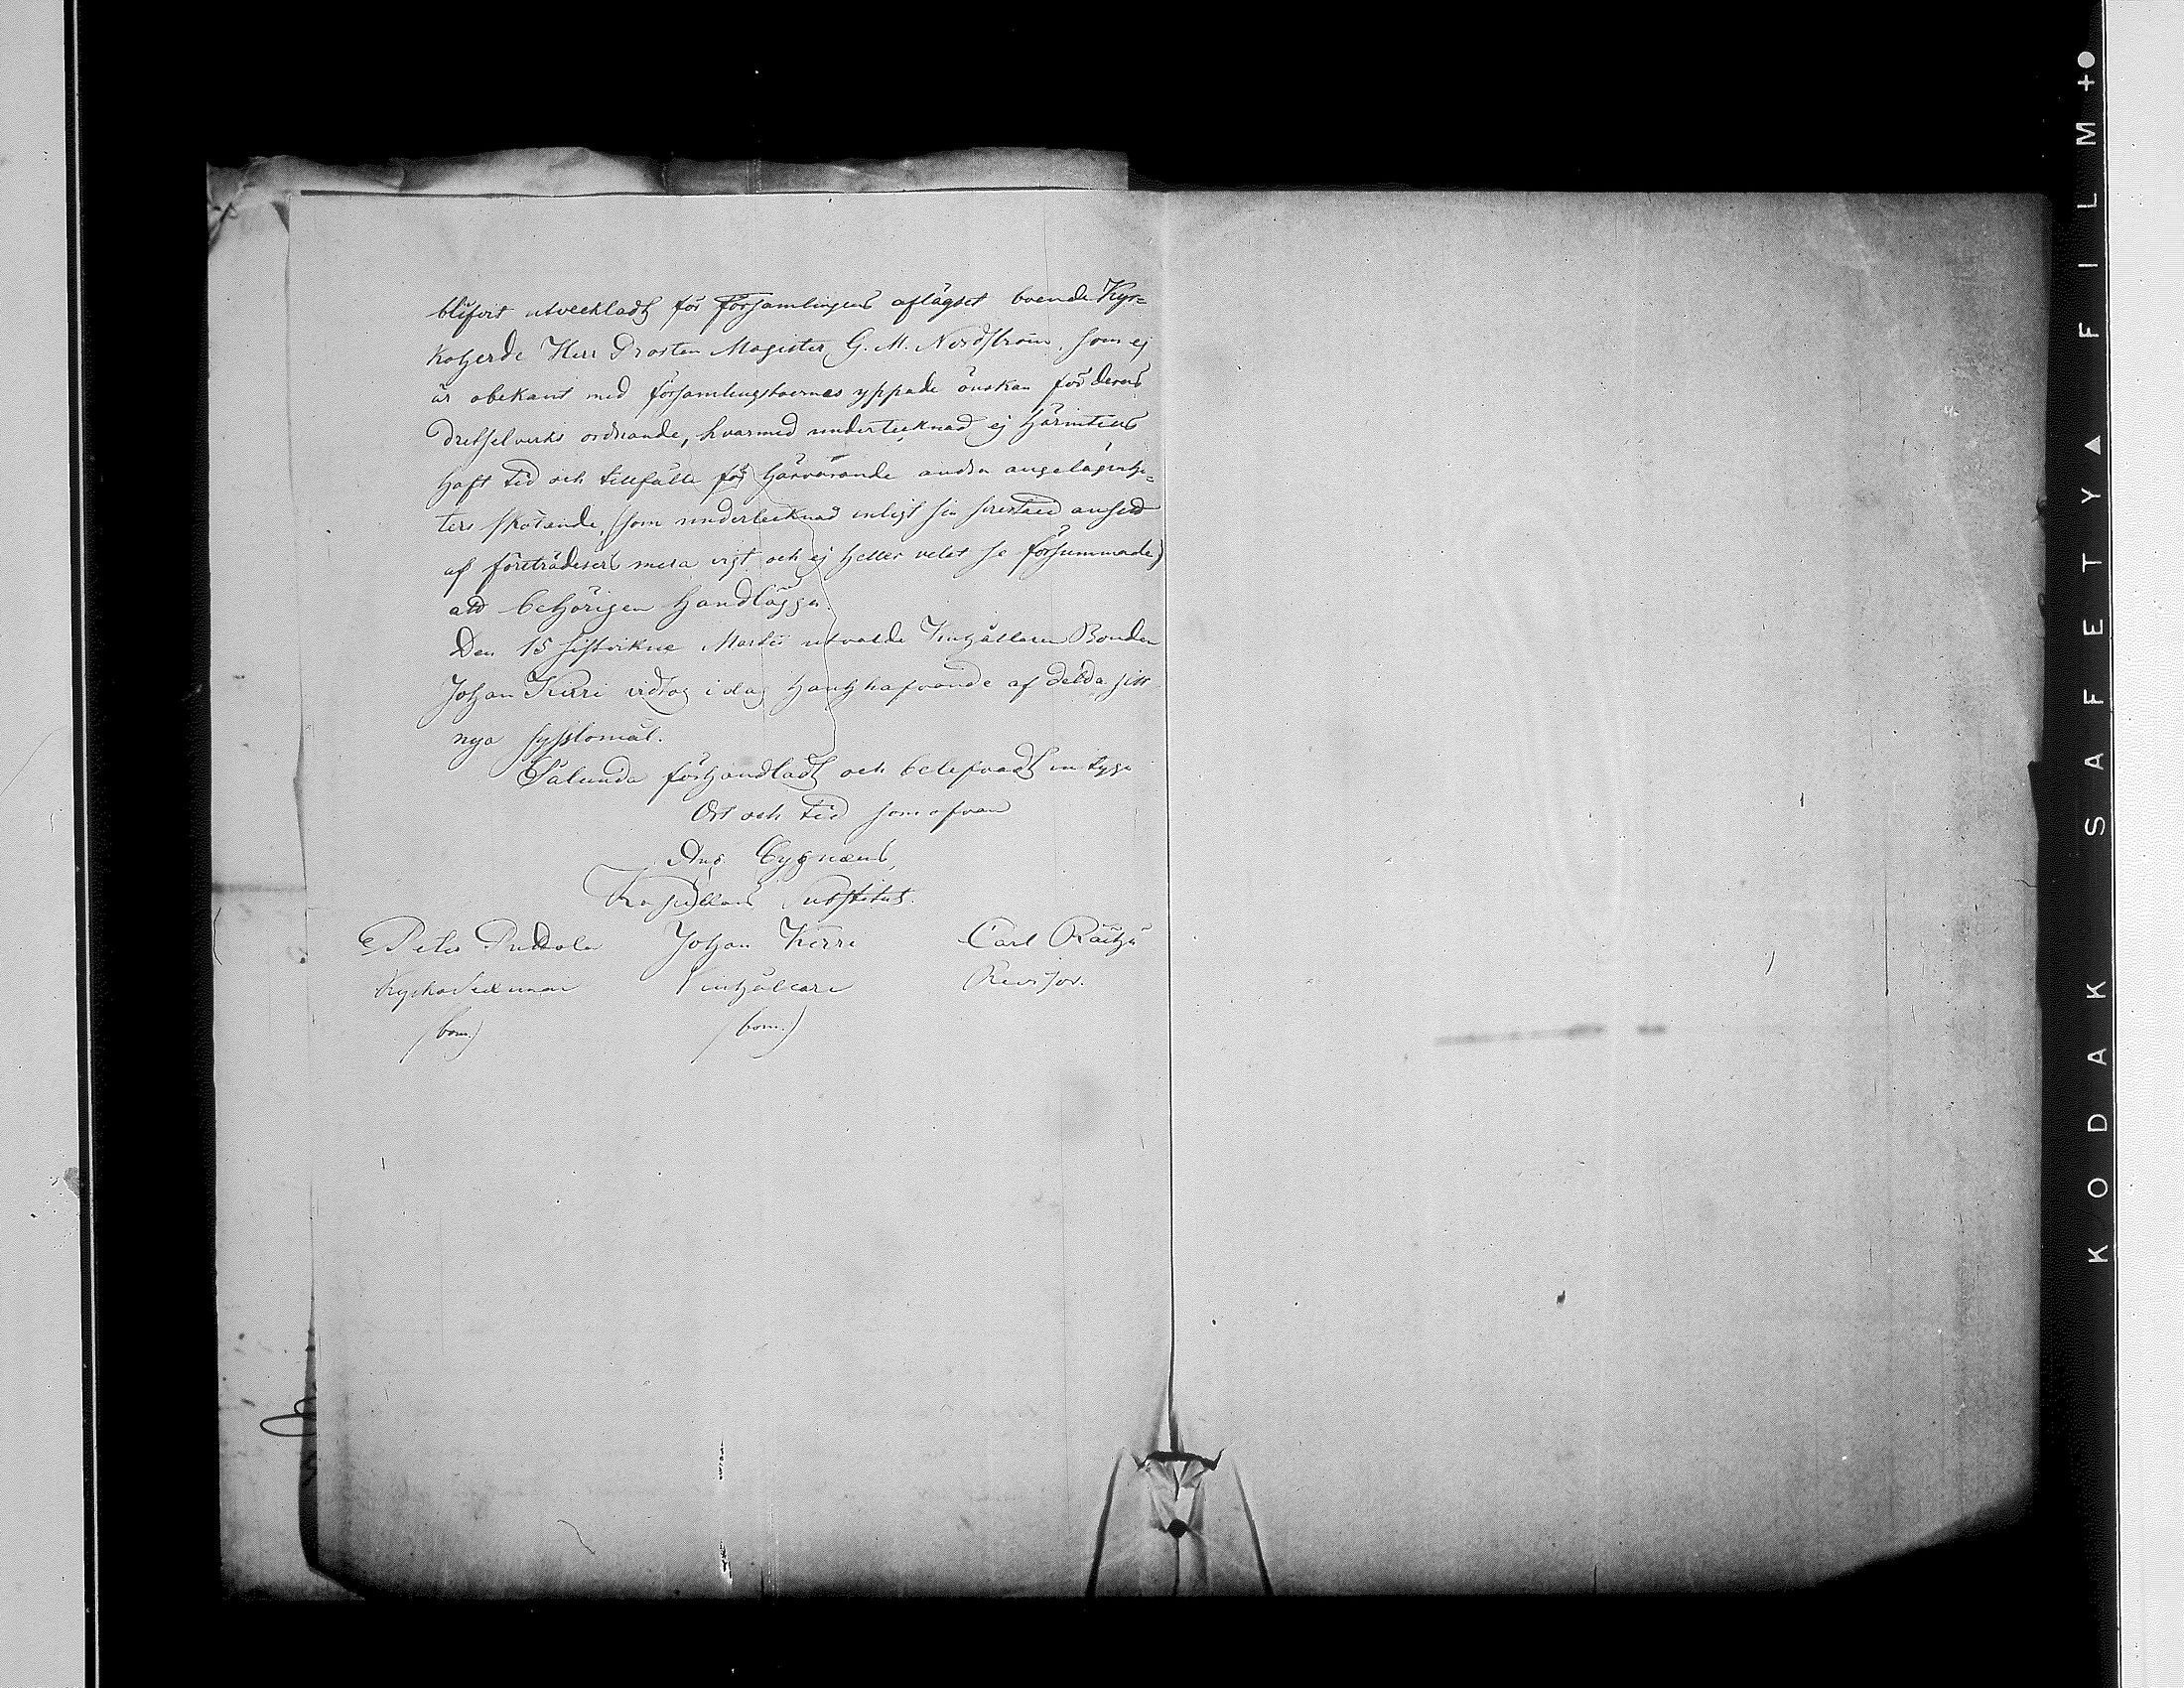 blifvit utveckladt för Församlingens aflägset boende Kyr=
koherde Herr Prosten Magister G. M. Nordström, som ej
är obekant med församlingsboernas yppade önskan för deras
Drätselverks ordnande, hvarmed undertecknad ej härintills
haft tid och tillfälle för härvarande andra angelägenhe=
ters skötande, (som undertecknad enligt sin ansedt
af företrädesvis mera vigt och ej heller velat se försummade)
att behörigen handlägga.
Den 15 sistvikne Martii utvalde Vinhållaren Bonden
Johan Kirri vidtog i dag handhafvande af detta sitt
nya sysslomål.
Sålunda förhandladt och belefvadt intyga
Ort och tid som ofvan
Aug. Cygnæus,
Kapellans Substitut.
Peter Johan Kirri Carl Räihä
Kyrko Vinhållare Revisor.
(bom.) (bom.)
KODAK SAFETY FILM